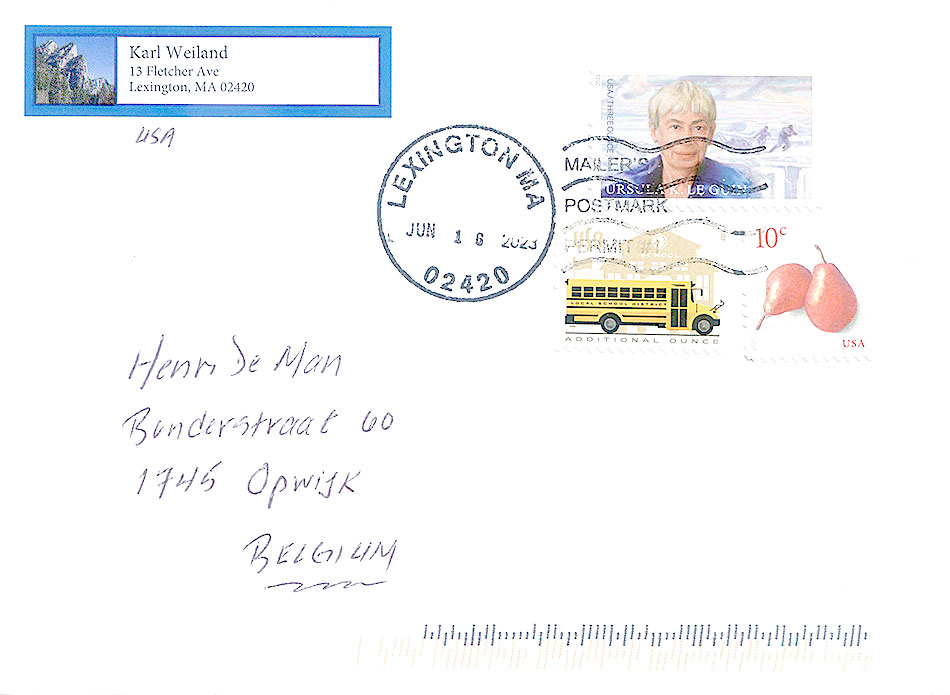 Karl Weiland
13 Fletcher Ave
Lexington, MA 02420
USA
LEXINGTON MA
JUN 16 2023
02420
USA/THREE OUNCE
URSULA K. LE GUIN
MAILER'S
POSTMARK
PERMIT #1
SCHOOL
LOCAL SCHOOL DISTRICT
ADDITIONAL OUNCE
10c
USA
Henri De Man
Bunderstraat 60
1745 Opwijk
BELGIUM